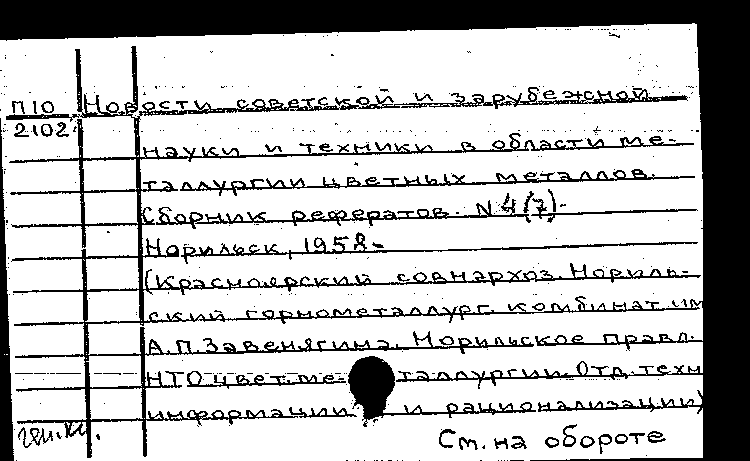 П10 Новости советской и зарубежной
2102
науки и техники в области ме-
таллургии цветных металлов.
Сборник рефератов. N 4(7)-
Норильск, 1958-
(Красноярский совнархоз. Нориль-
ский горнометаллург. комбинат им
А.П.Завенягина. Норильское правл.
НТО цвет. ме- таллургии. Отд. техн
информации и рационализации)
См. на обороте